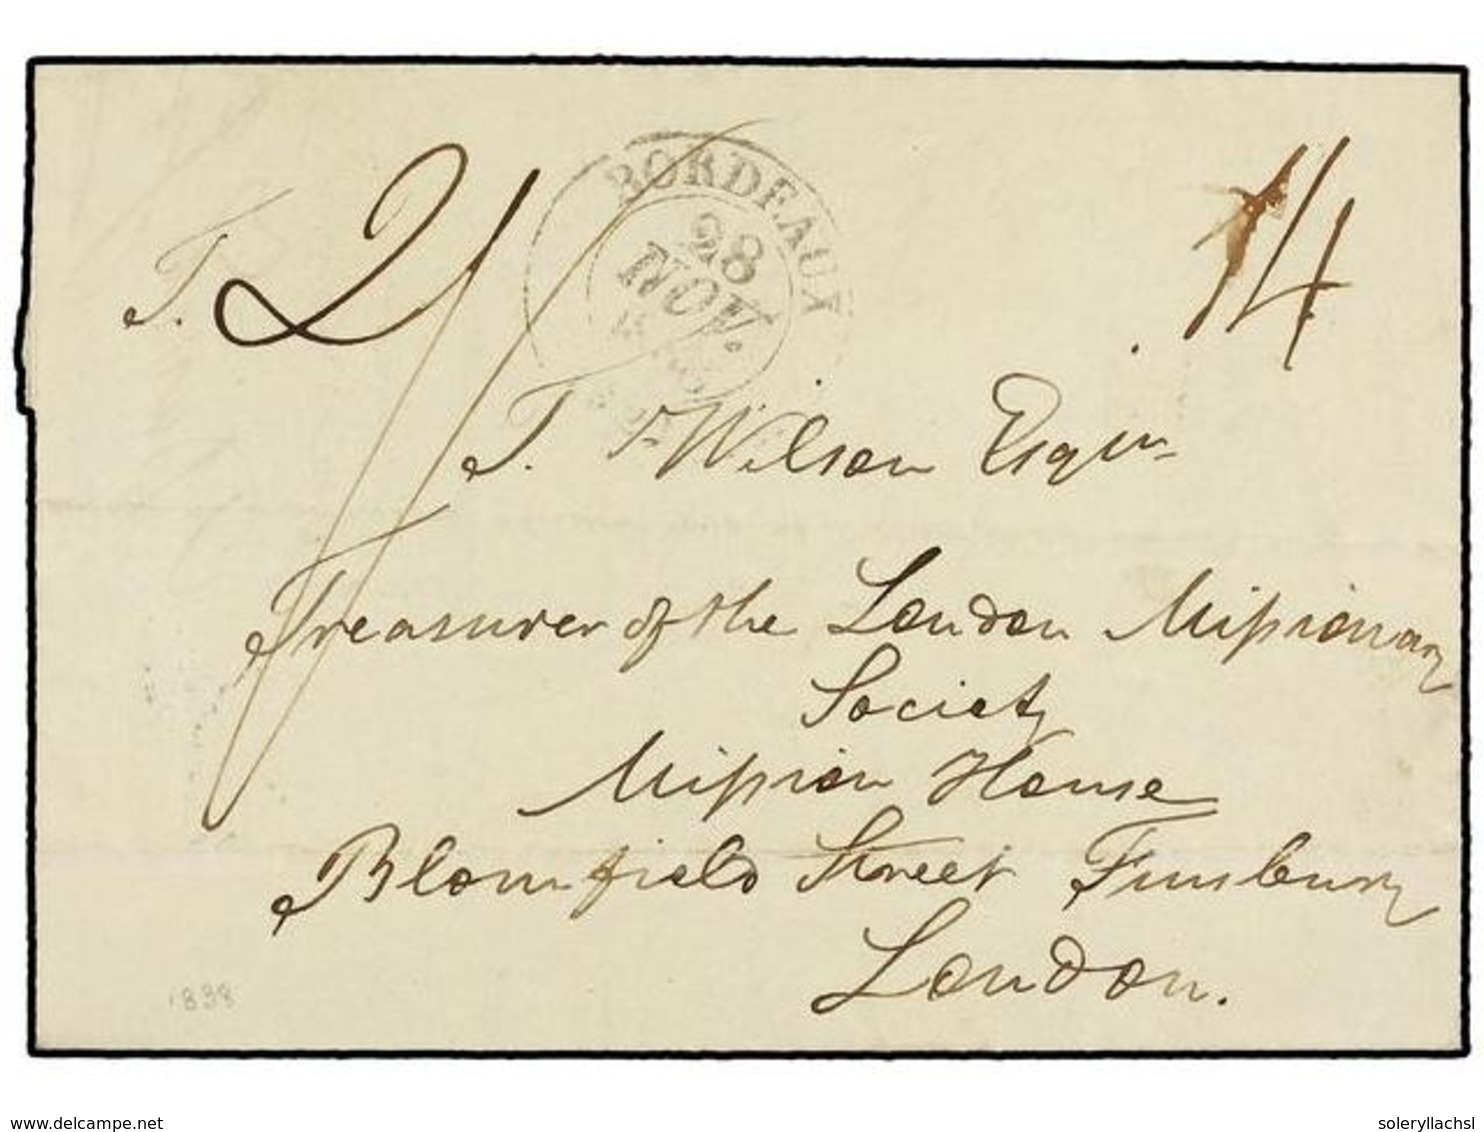 T. 2/
BORDEAUX
28
NOV.
14
T. Wilson Esqir
Treasurer of the London Missionary
Society
Mission House
Blomfield Street Finsbury
London.
1838
delcampe.net
soleryllachsl